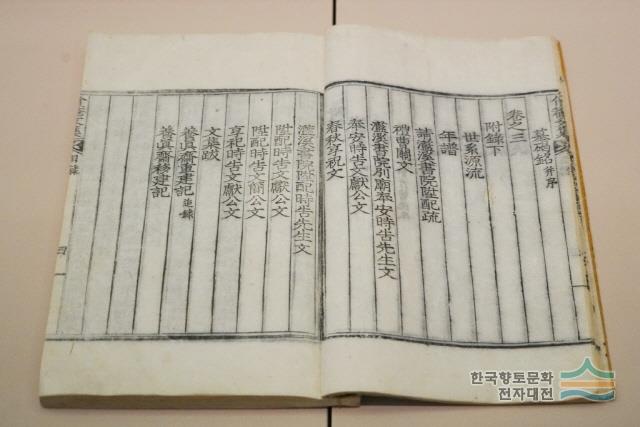 墓碣銘 幷序
卷之三
附錄下
世系源流
年譜
請灆溪書院陞配疏
禮曹關文
灆溪書院別廟奉安時告先生文
奉安時告文獻公文
春秋享祝文
灆溪書院陞配時告先生文
陞配時告文獻公文
陞配時告文簡公文
享祀時告文獻公文
文集跋
養眞齋重建記 追錄
養眞齋移建記
한국향토문화
전자대전